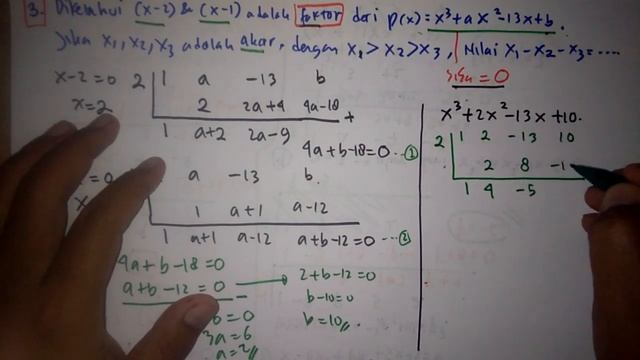 3. Diketahui (x-2) & (x-1) adalah faktor dari P(x) = x³+ax²-13x+b.
Jika x₁, x₂, x₃ adalah akar, dengan x₁ > x₂ > x₃, Nilai x₁ - x₂ - x₃ = ....
sisa = 0
x-2=0 2 1 a -13 b
x=2 2 2a+4 4a-18 +
1 a+2 2a-9
4a+b-18=0 ... ①
=0 a -13 b.
x 1 a+1 a-12
1 a+1 a-12 a+b-12=0 ... ②
4a+b-18=0
a+b-12=0 → 2+b-12=0
-
6=0 b-10=0
3a=6 b=10
a=2
x³+2x²-13x+10.
2 1 2 -13 10
2 8 -1
1 4 -5